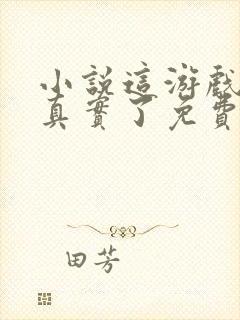 小説這游戲
真實了免費
田芳